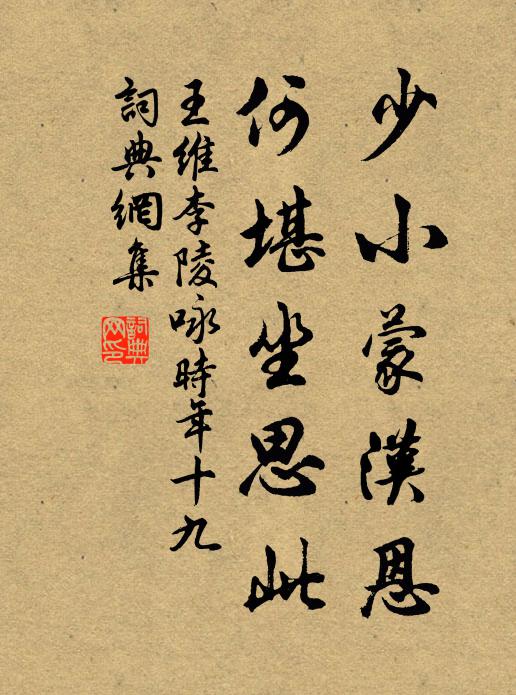 少小蒙漢恩
何堪坐思此
王維李陵咏時年十九
詞典網集
詞典網印